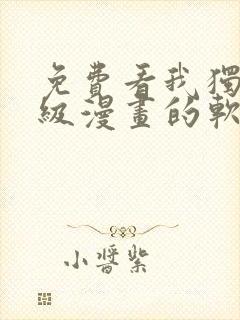 免費看我獨
級漫畫的軟
小醬紫